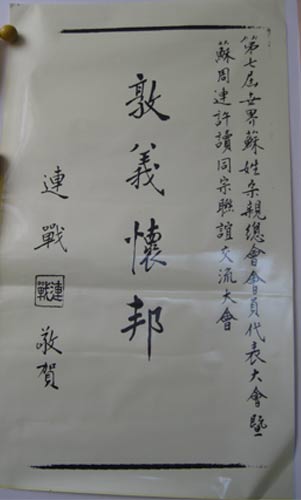 第七屆世界蘇姓宗親總會會員代表大會暨
蘇周連許讀同宗聯誼交流大會
敦義懷邦
連戰
連戰
敬賀